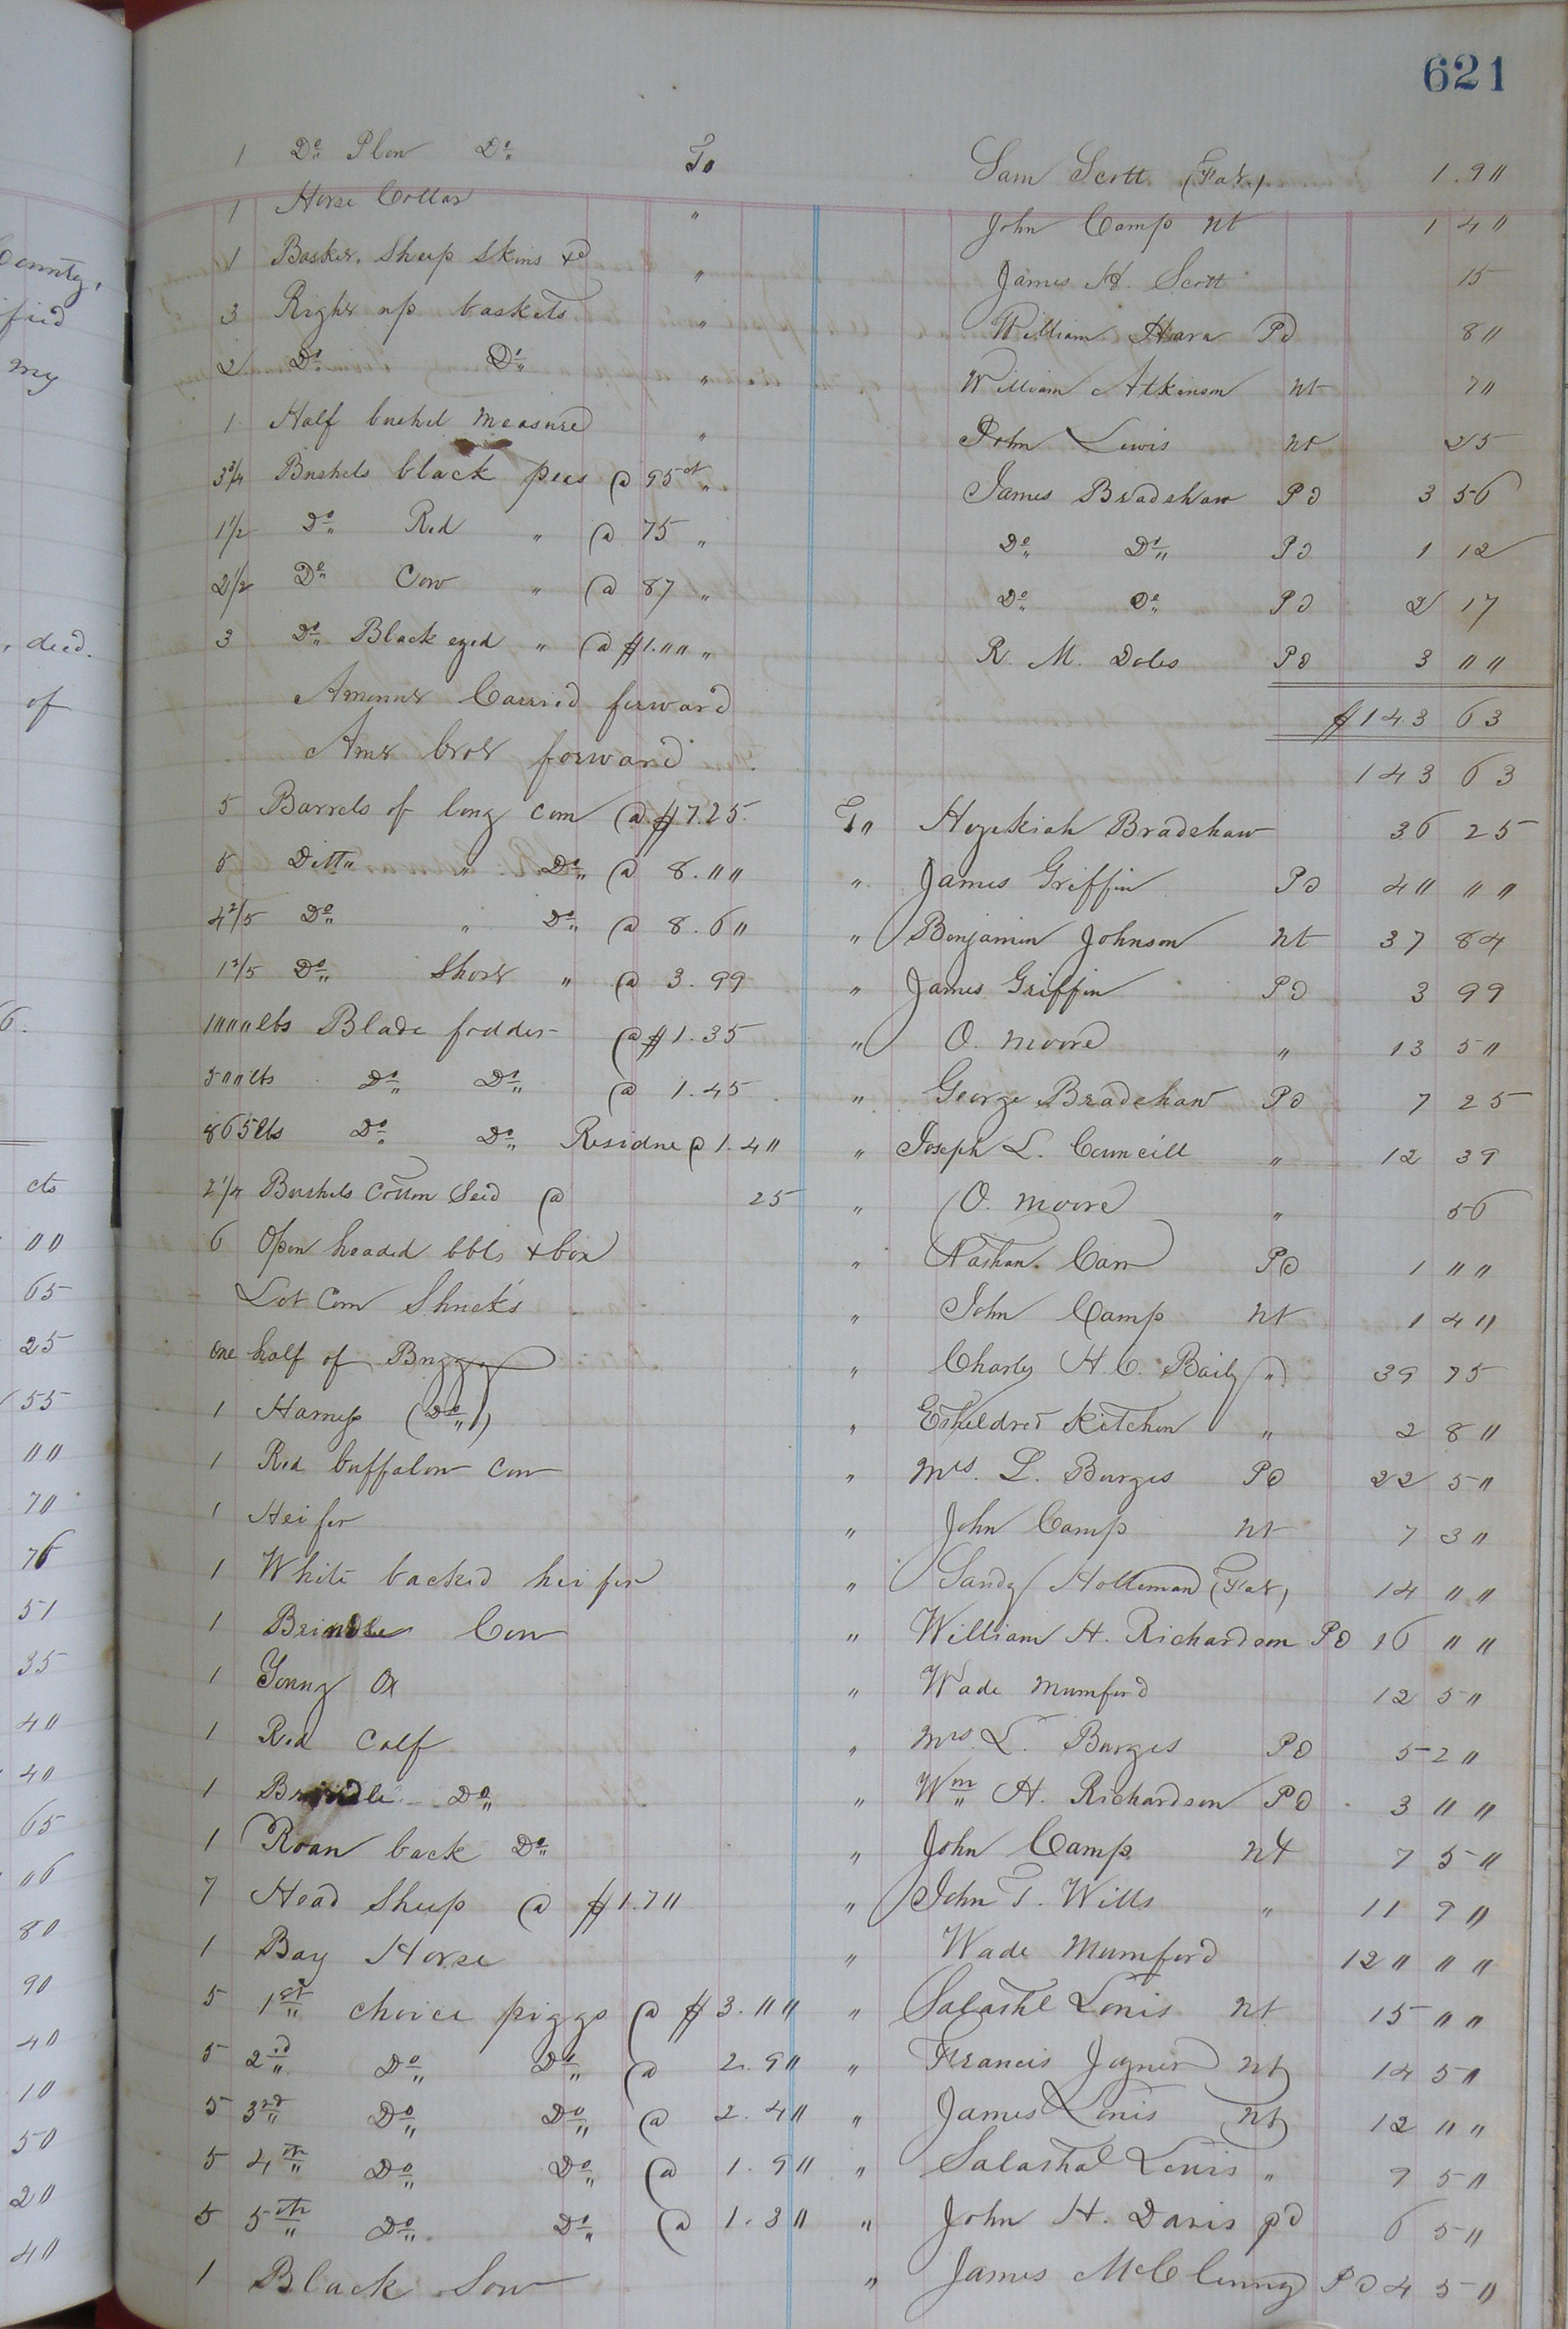 621
1 Do Plow Do To Sam Scott (Fat) 1.9"
1 Horse Collar " John Camp nt 1 4"
1 Basket, Sheep Skins &c " James H. Scott 15
3 Right up baskets " William Hara Pd 8"
2 Do Do " William Atkinson nt 7"
1 Half bushel measure " John Lewis nt 25
3 3/4 Bushels black peas @ 95 ct " James Bradshaw Pd 3 56
1 1/2 Do Red " @ 75 " Do Do Pd 1 12
2 1/2 Do Cow " @ 87 " Do Do Pd 2 17
3 Do Black eyed " @ $1."" " R. M. Doles Pd 3 ""
Amount Carried forward $143 63
Amt brot forward 143 63
5 Barrels of long corn @ $7.25. To Hezekiah Bradshaw 36 25
5 Ditto " Do @ 8."" " James Griffin Pd 4" ""
4 2/5 Do " Do @ 8.6" " Benjamin Johnson nt 37 84
1 2/5 Do Short " @ 3.99 " James Griffin Pd 3 99
1"""lbs Blade fodder @ $1.35 " O. Moore " 13 5"
5""lbs Do Do @ 1.45 " George Bradshaw Pd 7 25
865lbs Do Do Residue @ 1.4" " Joseph L. Councill " 12 39
2 1/4 Bushels Cotton Seed @ 25 " O. Moore " 56
6 Open headed bbls & box " Nathan Carr Pd 1 ""
Lot Corn Shucks " John Camp nt 1 4"
One half of Buggy " Charles H. C. Baily " 39 75
1 Harness (Do) " Etheldred Kitchen " 2 8"
1 Red buffalow Cow " Mrs. L. Burges Pd 22 5"
1 Heifer " John Camp nt 7 3"
1 White backed heifer " Sandy Holleman (Fat) 14 ""
1 Brindle Cow " William H. Richardson Pd 16 ""
1 Young Ox " Wade Mumford 12 5"
1 Red Calf " Mrs. L. Burges Pd 5 2"
1 Brindle Do " Wm H. Richardson Pd 3 ""
1 Roan back Do " John Camp nt 7 5"
7 Head Sheep @ $1.7" " John T. Wills " 11 9"
1 Bay Horse " Wade Mumford 12" ""
5 1st choice piggs @ $3."" " Salathl Louis nt 15 ""
5 2nd Do Do @ 2.9" " Francis Joyner nt 14 5"
5 3rd Do Do @ 2.4" " James Louis nt 12 ""
5 4th Do Do @ 1.9" " Salathal Louis " 9 5"
5 5th Do Do @ 1.3" " John H. Davis pd 6 5"
1 Black Sow " James McClenny Pd 4 5"
County,
fied
my
, decd.
of
6.
cts
00
65
25
55
""
70
76
51
35
40
40
65
"6
80
90
40
10
50
20
40